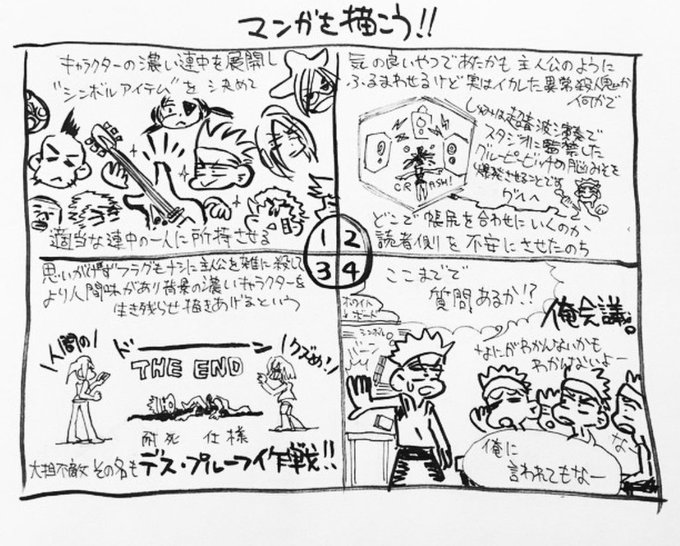 マンガを描こう!!
キャラクターの濃い連中を展開し
"シンボルアイテム"を決めて
適当な連中の一人に所持させる
1
気の良いやつであたかも主人公のように
ふるまわせるけど実はイカレた異常殺人鬼か
何かで
しゅみは超音波演奏で
スタジオに監禁した
グルーピービッチの脳みそを
爆発させることとする
グハハ
CRASH!
どこで帳尻を合わせにいくのか、
読者側を不安にさせたのち
2
思いがけずフラグもナシに主人公を雑に殺して
より人間味があり背景の濃いキャラクターを
生き残らせ描きあげるという
人間の
ドーーン
クズめ!
THE END
耐死 仕様
大胆不敵 その名もデス・プルーフ作戦!!
3
4
ここまでで
質問あるか!?
俺会議。
ホワイト
ボード
シンボル。
なにがわかんないかも
わかんないよー
な
俺に
言われてもなー